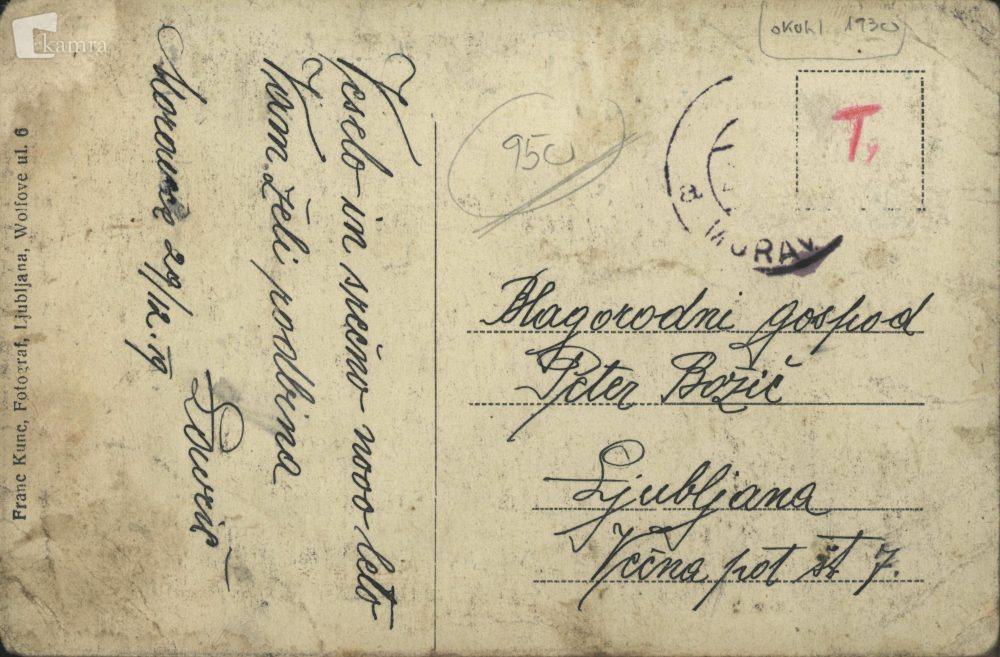 kamra
okoli 1930
950
T,
MORAV
Veselo in srečno novo leto
Vam želi rodbina
Moravče 29/12. 19
Blagorodni gospod
Peter Božič
Ljubljana
Včna pot št 7.
Franc Kunc, Fotograf, Ljubljana, Wolfove ul. 6